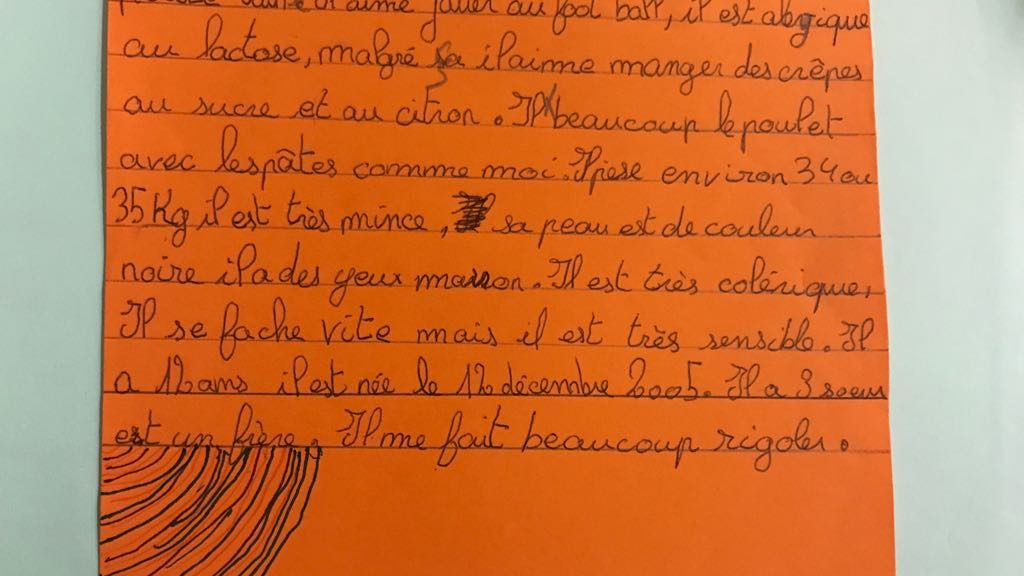 aime jouer au foot ball, il est alergique
au lactose, malgré sa il aime manger des crêpes
au sucre et au citron. Il beaucoup le poulet
avec les pâtes comme moi. Il pèse environ 34 ou
35 Kg il est très mince, sa peau est de couleur
noire il a des yeux marron. Il est très colérique,
Il se fache vite mais il est très sensible. Il
a 12 ans il est née le 12 décembre 2005. Il a 3 soeur
est un frère. Il me fait beaucoup rigoler.